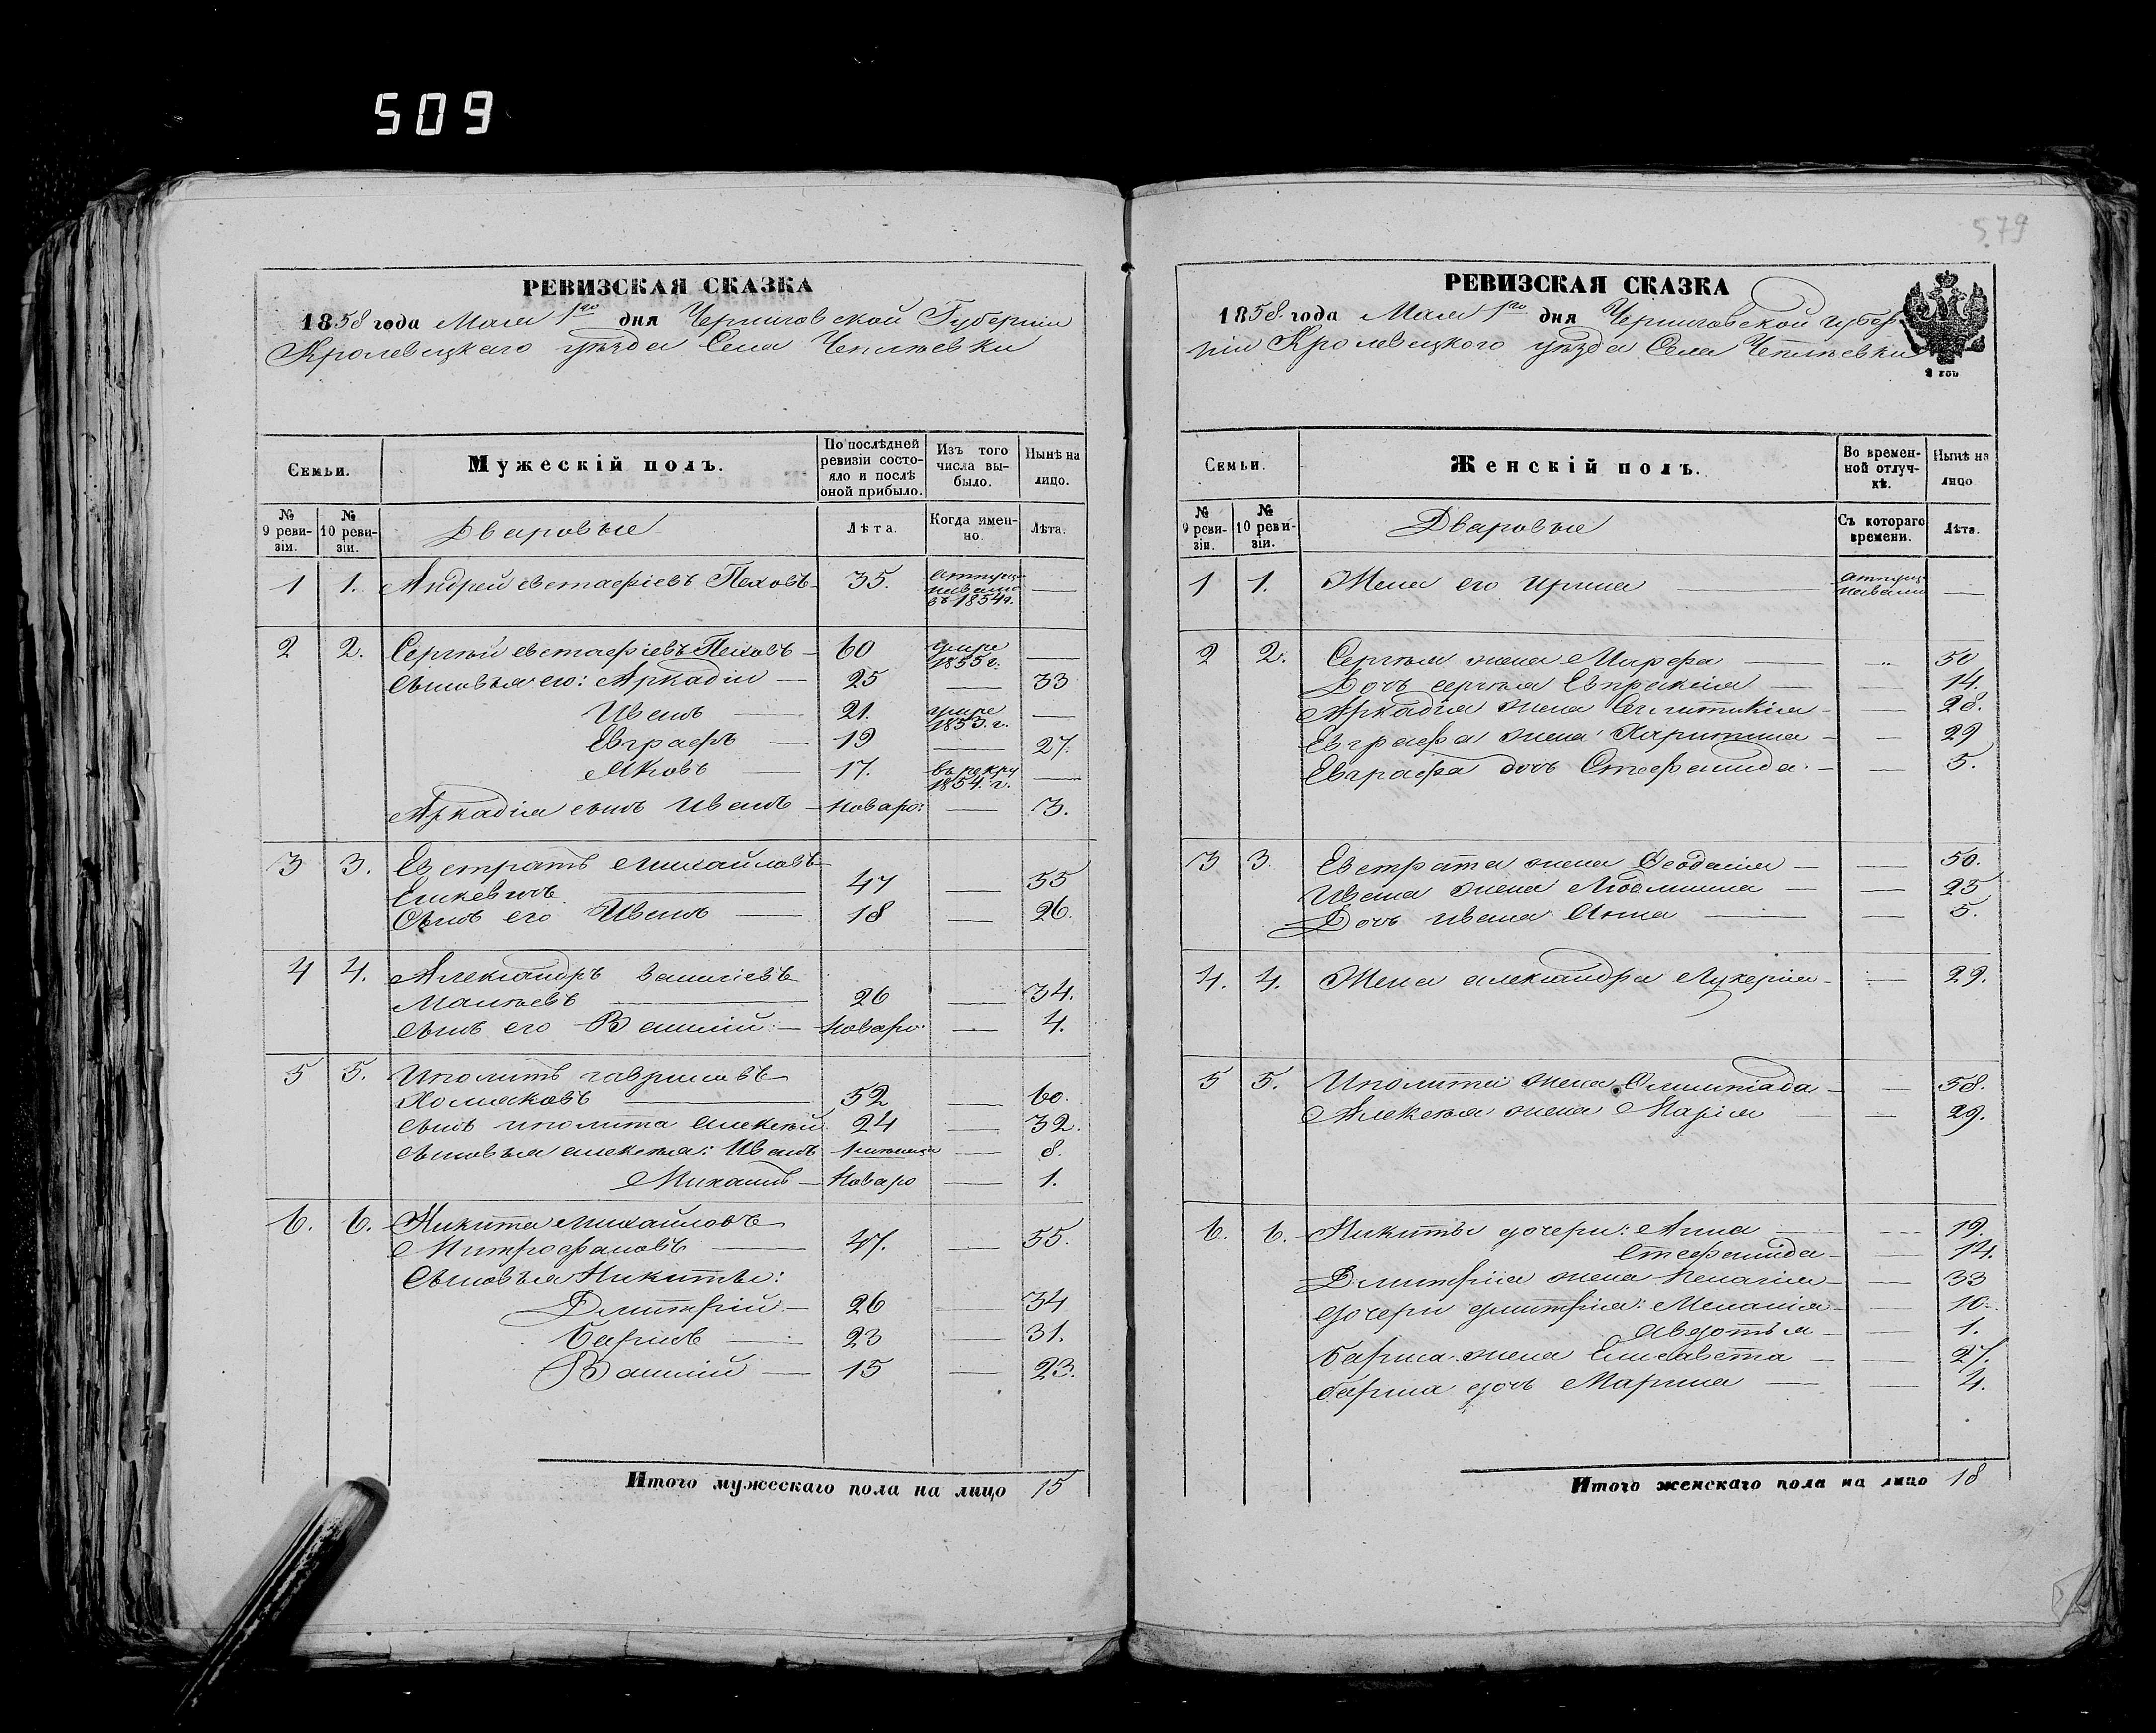 509
579
РЕВИЗСКАЯ СКАЗКА
1858 года Мая 1го дня Черниговской Губерніи
Кролевецкаго уѣзда Села Чеплѣевки
Семьи.
Мужескій полъ.
По послѣдней ревизіи состояло и послѣ оной прибыло.
Изъ того числа выбыло.
Нынѣ на лицо.
№ 9 ревизіи.
№ 10 ревизіи.
Дваровые
Лѣта.
Когда именно.
Лѣта.
1 1. Андрей евстафіевъ 35. въ 1854г. —
2 2. Сергѣй евстафіевъ 60 умре 1855г. —
Сыновья его: Аркадій — 25 — 33
Иванъ — 21. умре 1853.г. —
Евграфъ — 19 — 27.
Яковъ — 17. в рекру 1854.г. —
Аркадія сынъ Иванъ — новаро: — 3.
3 3. Евстратъ Михайловъ
47 — 55
Сынъ его Иванъ — 18 — 26.
4 4. Александръ Василіевъ
26 — 34.
сынъ его Василій — новаро. — 4.
5 5. Иполитъ гавриловъ
Холисковъ — 52 — 60.
сынъ иполита Алексѣй 24 — 32.
сыновья алексѣя: Иванъ — 8.
Михаилъ — Новаро — 1.
6. 6. Никита Михайловъ
Митрофановъ — 47. — 55.
Сыновья Никиты:
Дмитрій — 26 — 34
барисъ — 23 — 31.
Василій — 15 — 23.
Итого мужескаго пола на лицо 15
РЕВИЗСКАЯ СКАЗКА
1858. года Мая 1го дня Черниговской губер
ніи Кролевецкого уѣзда Села Чеплѣевки
2 коп
Семьи.
Женскій полъ.
Во временной отлучкѣ.
Нынѣ на лицо
№ 9 ревизіи.
№ 10 ревизіи.
Дваровые
Съ котораго времени.
Лѣта.
1 1. Жена его Ирина — —
2 2. Сергѣя жена Марфа — 50
Дочь сергѣя Евпраксія — 14.
Аркадія жена — 28.
Евграфа жена Харитина — 29
Евграфа дочь Стефанида — 5.
3 3. Евстрата жена Феодосія — 50.
Ивана жена — 25
Дочь ивана Анна — 5.
4. 4. Жена александра Лукерія — 29.
5 5. Иполита жена Олимпіада — 58.
Алексѣя жена Марія — 29.
6. 6. Никиты дочери: Анна — 19.
Стефанида — 14.
Дмитрія жена Пелагія — 33
дочери дмитрія: Меланія — 10.
авдотья — 1.
бариса жена Елисавета — 27.
бариса дочь Марина — 4.
Итого женскаго пола на лицо 18